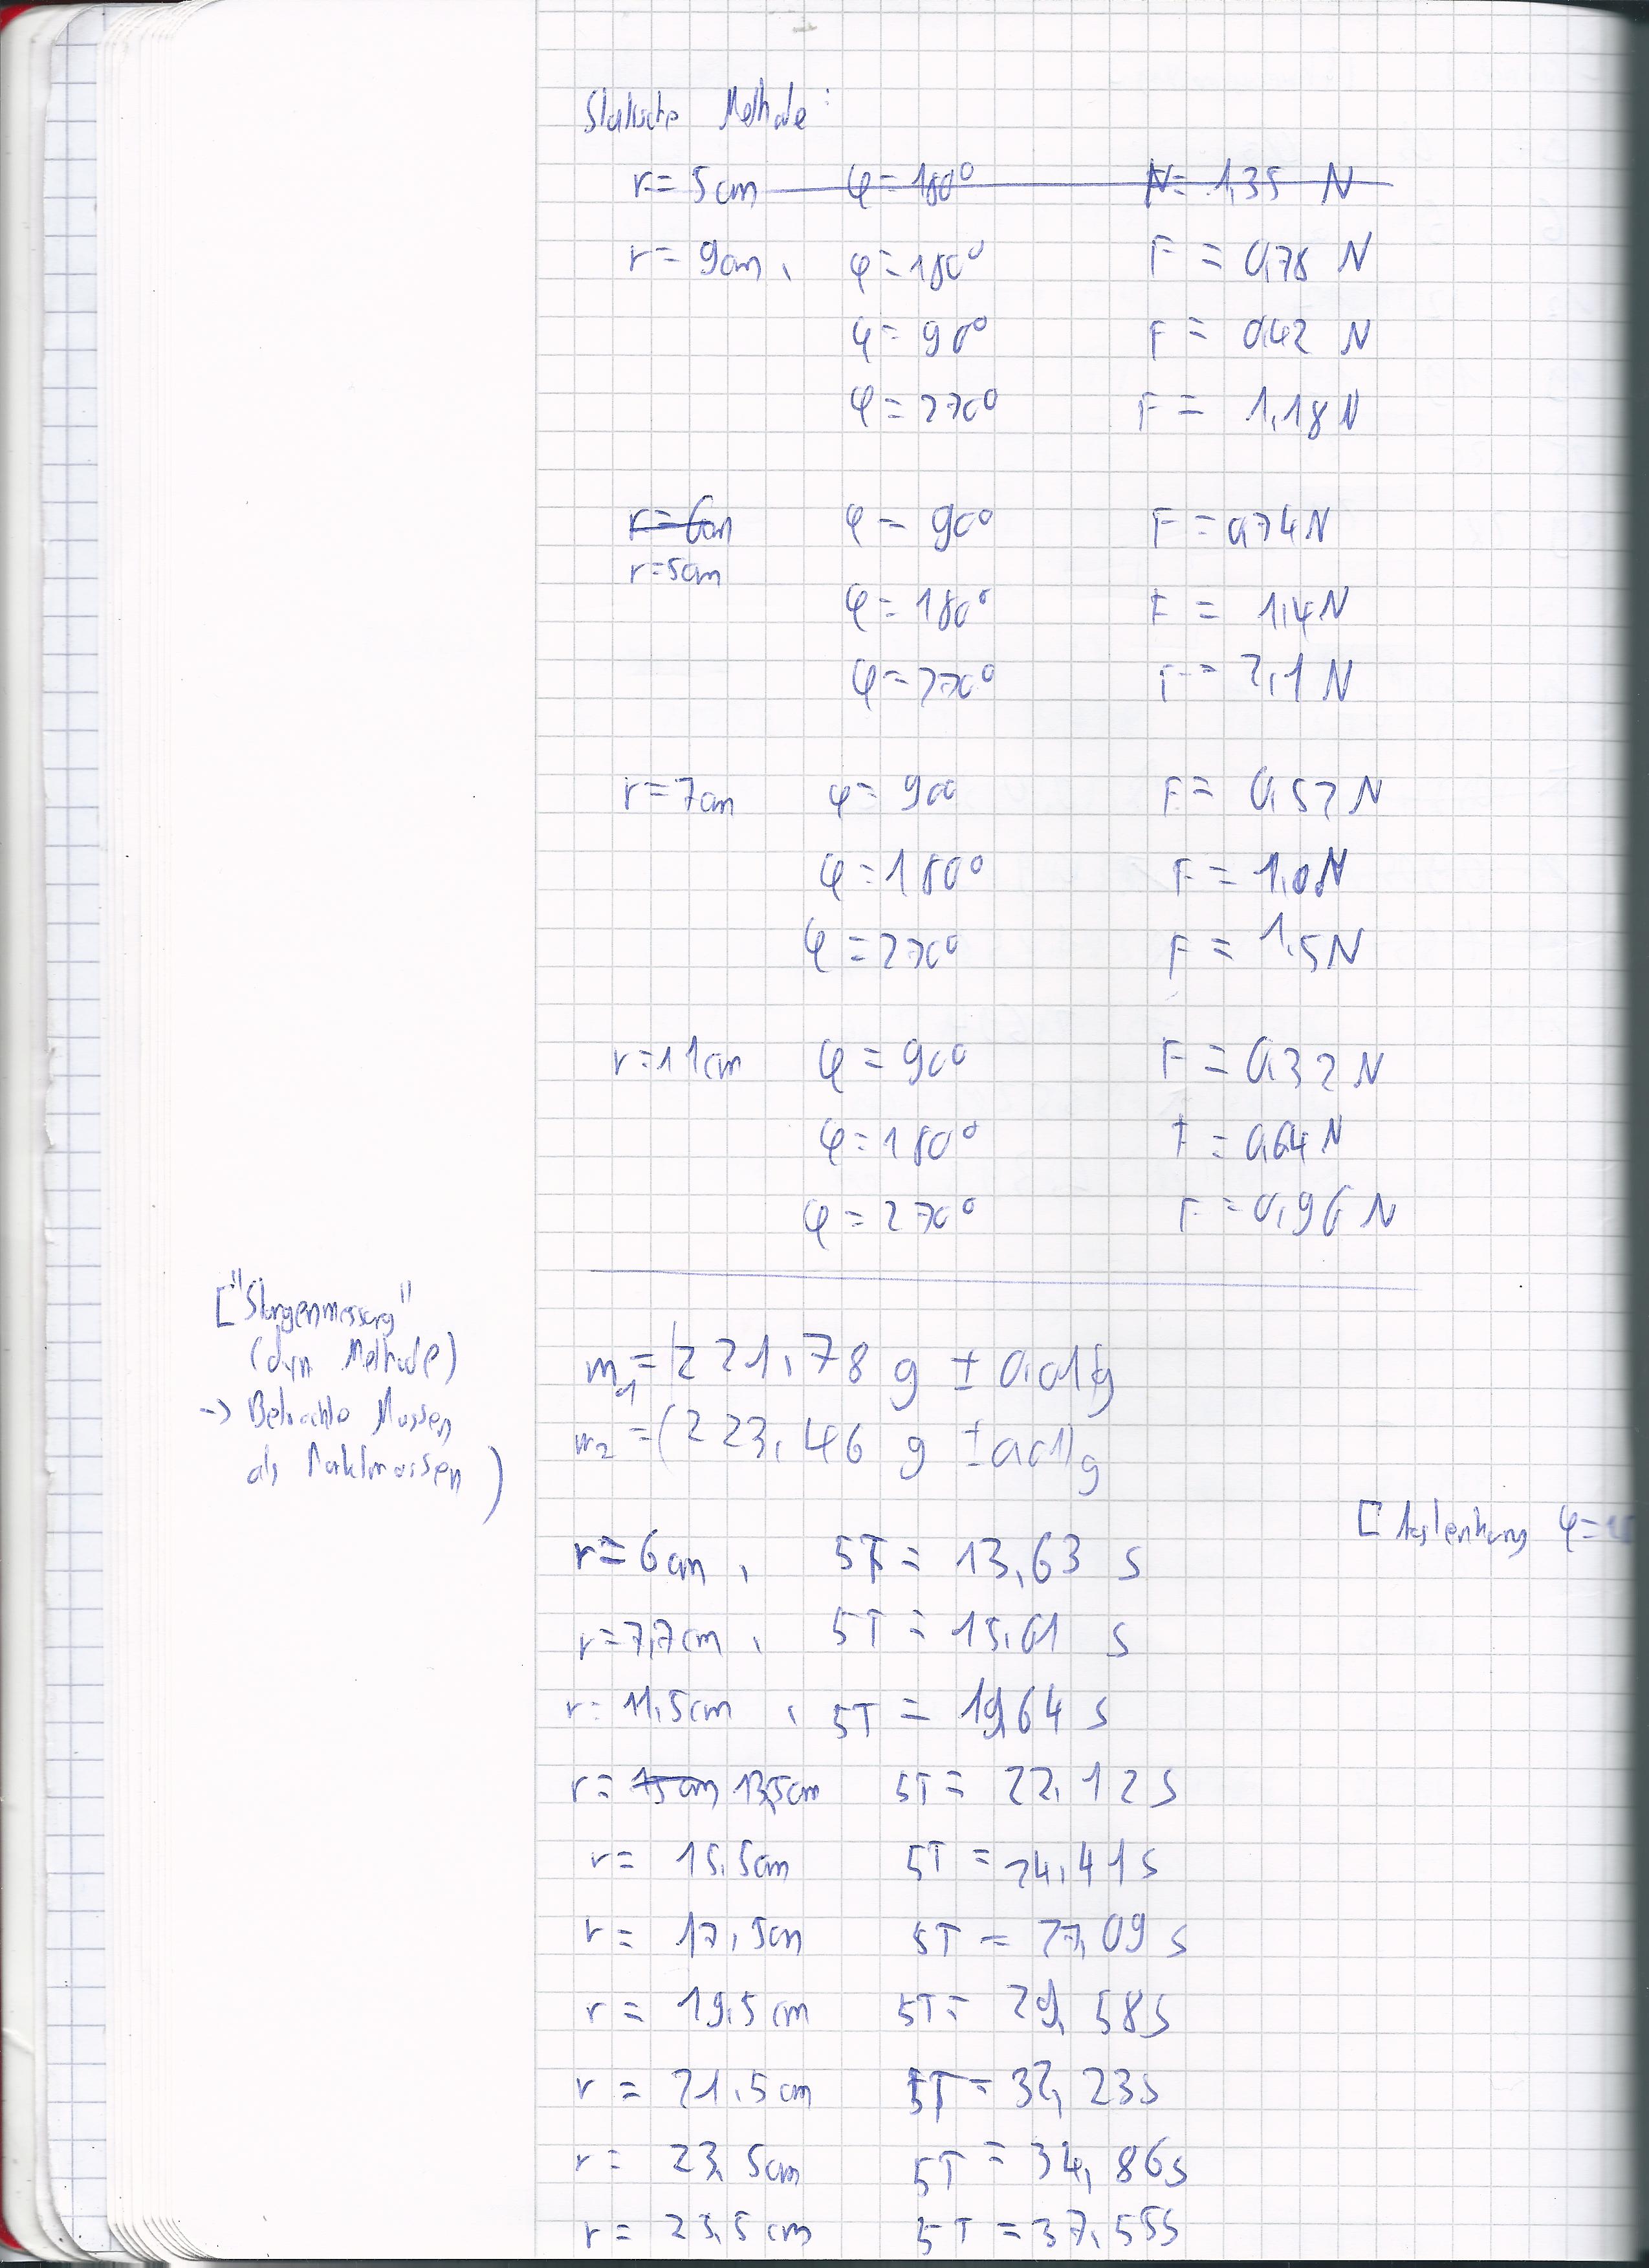 Statische Methode:
r = 5 cm φ = 180° N = 1,35 N
r = 9 cm, φ = 180° F = 0,78 N
φ = 90° F = 0,42 N
φ = 270° F = 1,18 N
r = 6 cm φ = 90° F = 0,74 N
r = 5 cm
φ = 180° F = 1,4 N
φ = 270° F = 2,1 N
r = 7 cm φ = 90° F = 0,52 N
φ = 180° F = 1,0 N
φ = 270° F = 1,5 N
r = 11 cm φ = 90° F = 0,32 N
φ = 180° F = 0,64 N
φ = 270° F = 0,96 N
["Stangenmessung"
(dyn Methode)
-> Betrachte Massen
als Punktmassen)
m1 = (221,78 g ± 0,01) g
m2 = (223,46 g ± 0,01) g
[Auslenkung φ =
r = 6 cm, 5T = 13,63 s
r = 7,7 cm, 5T = 15,01 s
r = 11,5 cm, 5T = 19,64 s
r = 15 cm 13,5 cm 5T = 22,12 s
r = 15,5 cm 5T = 24,41 s
r = 17,5 cm 5T = 27,09 s
r = 19,5 cm 5T = 29,58 s
r = 21,5 cm 5T = 32,23 s
r = 23,5 cm 5T = 34,86 s
r = 25,5 cm 5T = 37,55 s